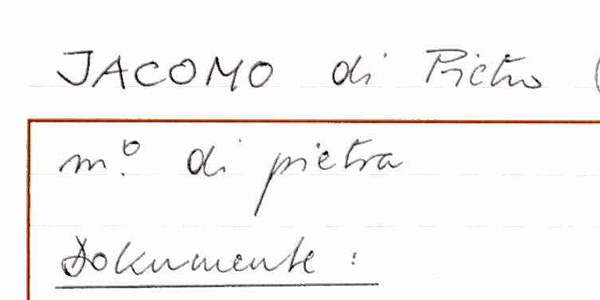 JACOMO di Pietro (
m.º di pietra
Dokumente :